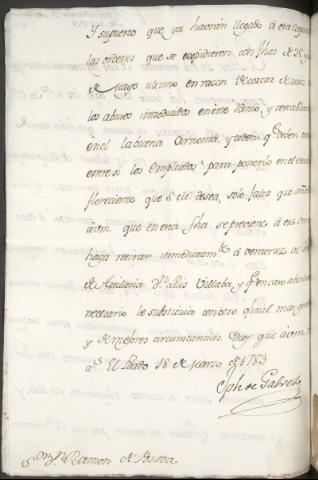 Y supuesto que ya havrán llegado á esa
las ordenes que se expidieron con fhas de 25 y
de Mayo ultimo en razon de cortar de raiz
los abusos introducidos en este Ramo, y restablecer
en el la buena Armonia, y orden qe. deben
entre sí los Empleados para ponerlo en el
floreciente que S. M. desea, solo falta que
á vm. que en esta fha se previene á ese
haga retirar inmediatamte. á Veracruz al
de Artilleria Dn. Luis Villaba, y
necesario le substituia con otro oficial mas
y de mejores circunstancias. Dios gue. á vm.
as. El Pardo 18 de Marzo de 1783
Jph de Galvez
Sor. Dn. Ramon de Posada